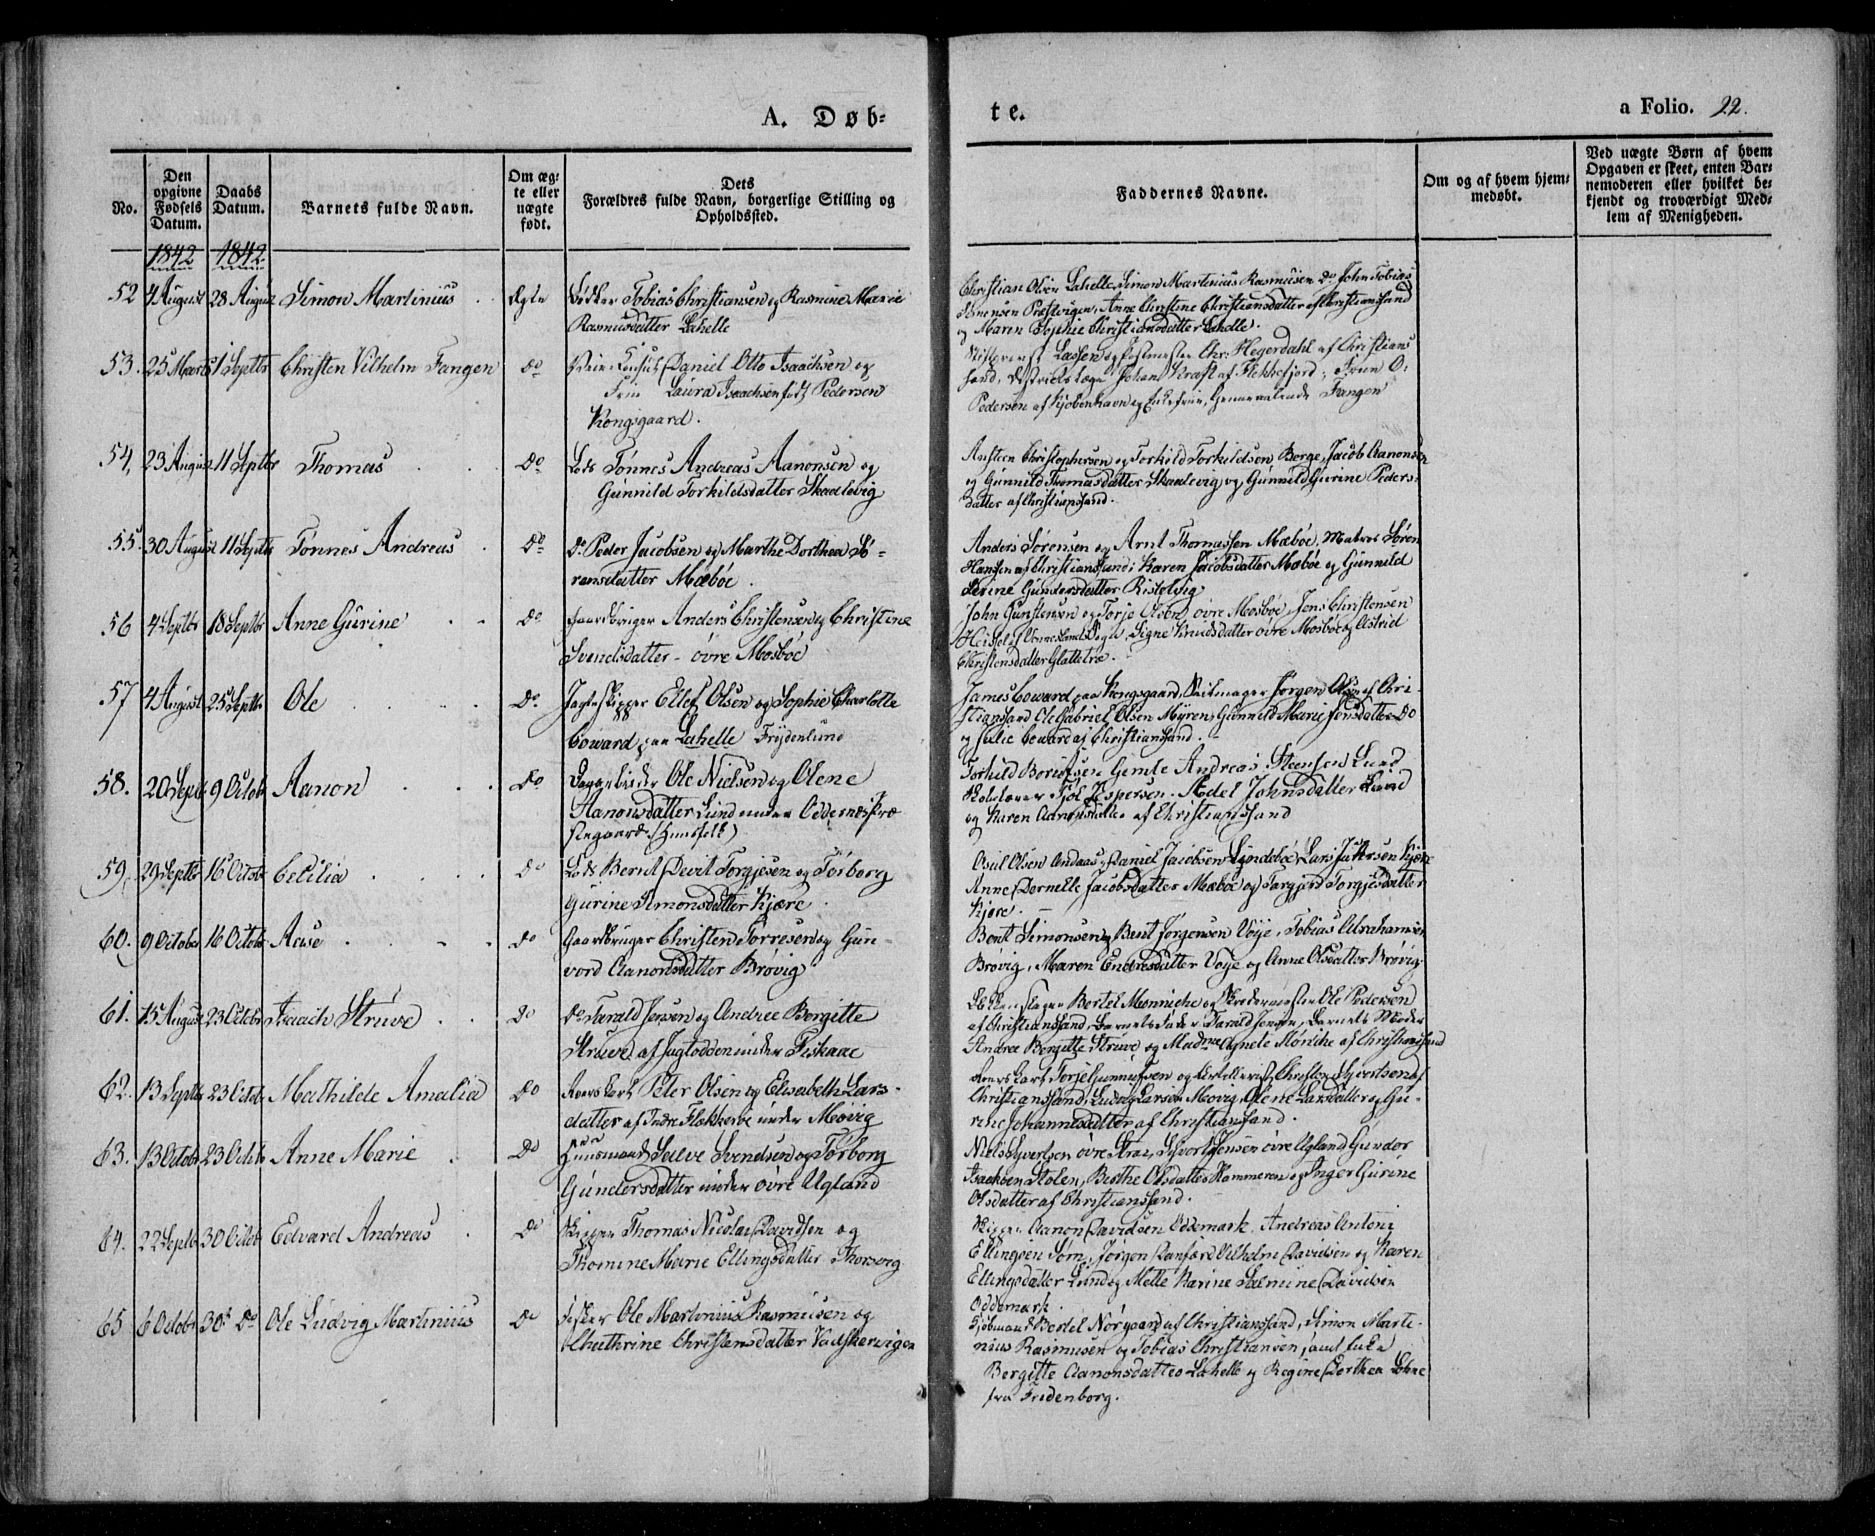 A. Døb-
te.
a Folio. 22.
No.
Den opgivne Fødsels Datum.
Daabs Datum.
Barnets fulde Navn.
Om ægte eller uægte født.
Dets Forældres fulde Navn, borgerlige Stilling og Opholdssted.
Faddernes Navne.
Om og af hvem hjemmedøbt.
Ved uægte Børn af hvem Opgaven er skeet, enten Barnemoderen eller hvilket bekjendt og troværdigt Medlem af Menigheden.
1842 1842
52 4 August 28 August Simon Martinius Ægte Bødker Tobias Christiansen og Rasmine Marie
Rasmusdatter Lahelle
Christian Olsen Lahelle, Simon Martinius Rasmusen Do John Tobias
Sørensen Præstvigen, Anne Christine Christiansdatter af Christiansand
og Maren Sophie Christiansdatter Lahelle.
53. 25 Marts 1 Septbr Christen Vilhelm Fangen Do Consul Daniel Otto Isaachsen og
Frue Laura Isaachsen født Pedersen
Kongsgaard.
Lassen og Postmester Chr: Hegerdahl af Christians
sand, Districtslæge Johan Kraft af Flekkefjord, Frue O:
Pedersen af Kjøbenhavn og Enkefrue Fangen
54, 23 August 11 Septbr Thomas Do Lods Tønnes Andreas Aanonsen og
Gunnild Torkildsdatter Skaalevig
Austen Christophersen og Torkild Torkildsen Berge, Jacob Aanonsen
og Gunnild Thomasdatter Skaalevig og Gunnild Gurine Peders-
datter af Christiansand.
55. 30 August 11 Septbr Tønnes Andreas Do Do Peder Jacobsen og Marthe Dorthea Sø-
rensdatter Mæbøe.
Anders Sørensen og Arnt Thomassen Mæbøe, Matros Søren
Hansen af Christiansand, Karen Jacobsdatter Mæbøe og Gunnild
Serine Gundersdatter
56 4 Septbr 18 Septbr Anne Gurine Do Gaardbruger Anders Christensen og Christine
Svendsdatter - øvre Mosbøe
John Gunstensen og Torje Olsen øvre Mosbøe, Jens Christensen
Signe Knudsdatter øvre Mosbøe og Astrid
Christensdatter Glattetre.
57 4 August 25 Septbr Ole Do Jagteskipper Ellef Olsen og Sophie Charlotte
Coward paa Lahelle Frydenlund
James Coward paa Kongsgaard, Seilmager Jørgen Olsen af Chri-
stiansand, Ole Gabriel Olsen Myren, Gunnild Marie Jensdatter Do
og Julie Coward af Christiansand.
58. 20 Septr 9 Octobr Aanon Do Dagarbeider Ole Nielsen og Olene
Aanonsdatter Lund under Oddernes Præ
stegaard (Huusfolk)
Torkild Gemle Andreas Steensen Lund
Jespersen. Aadel Johnsdatter Lund
og Karen Aanonsdatter af Christiansand
59, 29 Septbr 16 Octobr Cecilia Do Lods Bernt Devit Torgjesen og Torborg
Gurine Simonsdatter Kjære.
Osul Olsen Andaas, Daniel Jacobsen Lyndebøe, Lars Kjære
Anne Pernelle Jacobsdatter Mæbøe og Torgjesdatter
Kjære.
60. 9 October 16 Octobr Aase Do Gaardbruger Christen Torresen og Gun-
vord Aanonsdatter Brøvig
Bent Simonsen og Bent Jørgensen Voje, Tobias Abrahamsen
Brøvig, Maren Endresdatter Voje og Anne Olsdatter Brøvig
61. 15 August 23 Octobr Isaach Struve Do Do Tarald Jensen og Andrea Bergitte
Struve af under Fiskaae
Bertel Mønniche og Ole Pedersen
af Christiansand, Barnets Fader Tarald Jensen, Barnets Moder
Andrea Bergitte Struve og Madme Agnete Mønniche af Christiansand
62. 13 Septbr 23 Octobr Mathilde Amalia Do Peter Olsen og Elisabeth Lars-
datter af Indre Flekkerøe under Møvig
Torje Gunnufsen og Christen Syvertsen af
Christiansand, Ludvig Larsen Møvig, Olene Larsdatter og Gu-
rine Johannesdatter af Christiansand.
63. 13 Octobr 23 Octbr Anne Marie Do Huusmand Salve Svendsen og Torborg
Gundersdatter under øvre Ugland
Niels Syvertsen øvre Strai, Syvert Jensen øvre Ugland, Gundor
Isachsen Stolen, Berthe Olsdatter Hammeren og Inger Gurine
Olsdatter af Christiansand.
64. 22 Septbr 30 Octobr Edvard Andreas Do Skipper Thomas Nicolai Davidsen og
Thomine Marie Ellingsdatter Thorsvig
Skipper Aanon Davidsen Oddemark, Andreas Antoni
Ellingsen Sørn, Jørgen Vilhelm Davidsen og Karen
Ellingsdatter Lund og Melle Karine Salmine Davidsen
Oddemark.
65 6 Octobr 30 Do Ole Ludvig Martinius Do Fisker Ole Martinius Rasmusen og
Chathrine Christensdatter Vadskervigen
Kjøbmand Bertel Nørgaard af Christiansand, Simon Marti-
nius Rasmusen og Tobias Christiansen, samt Enke
Bergitte Aanonsdatter Lahelle og Regine Dorthea
fra Fredenborg.